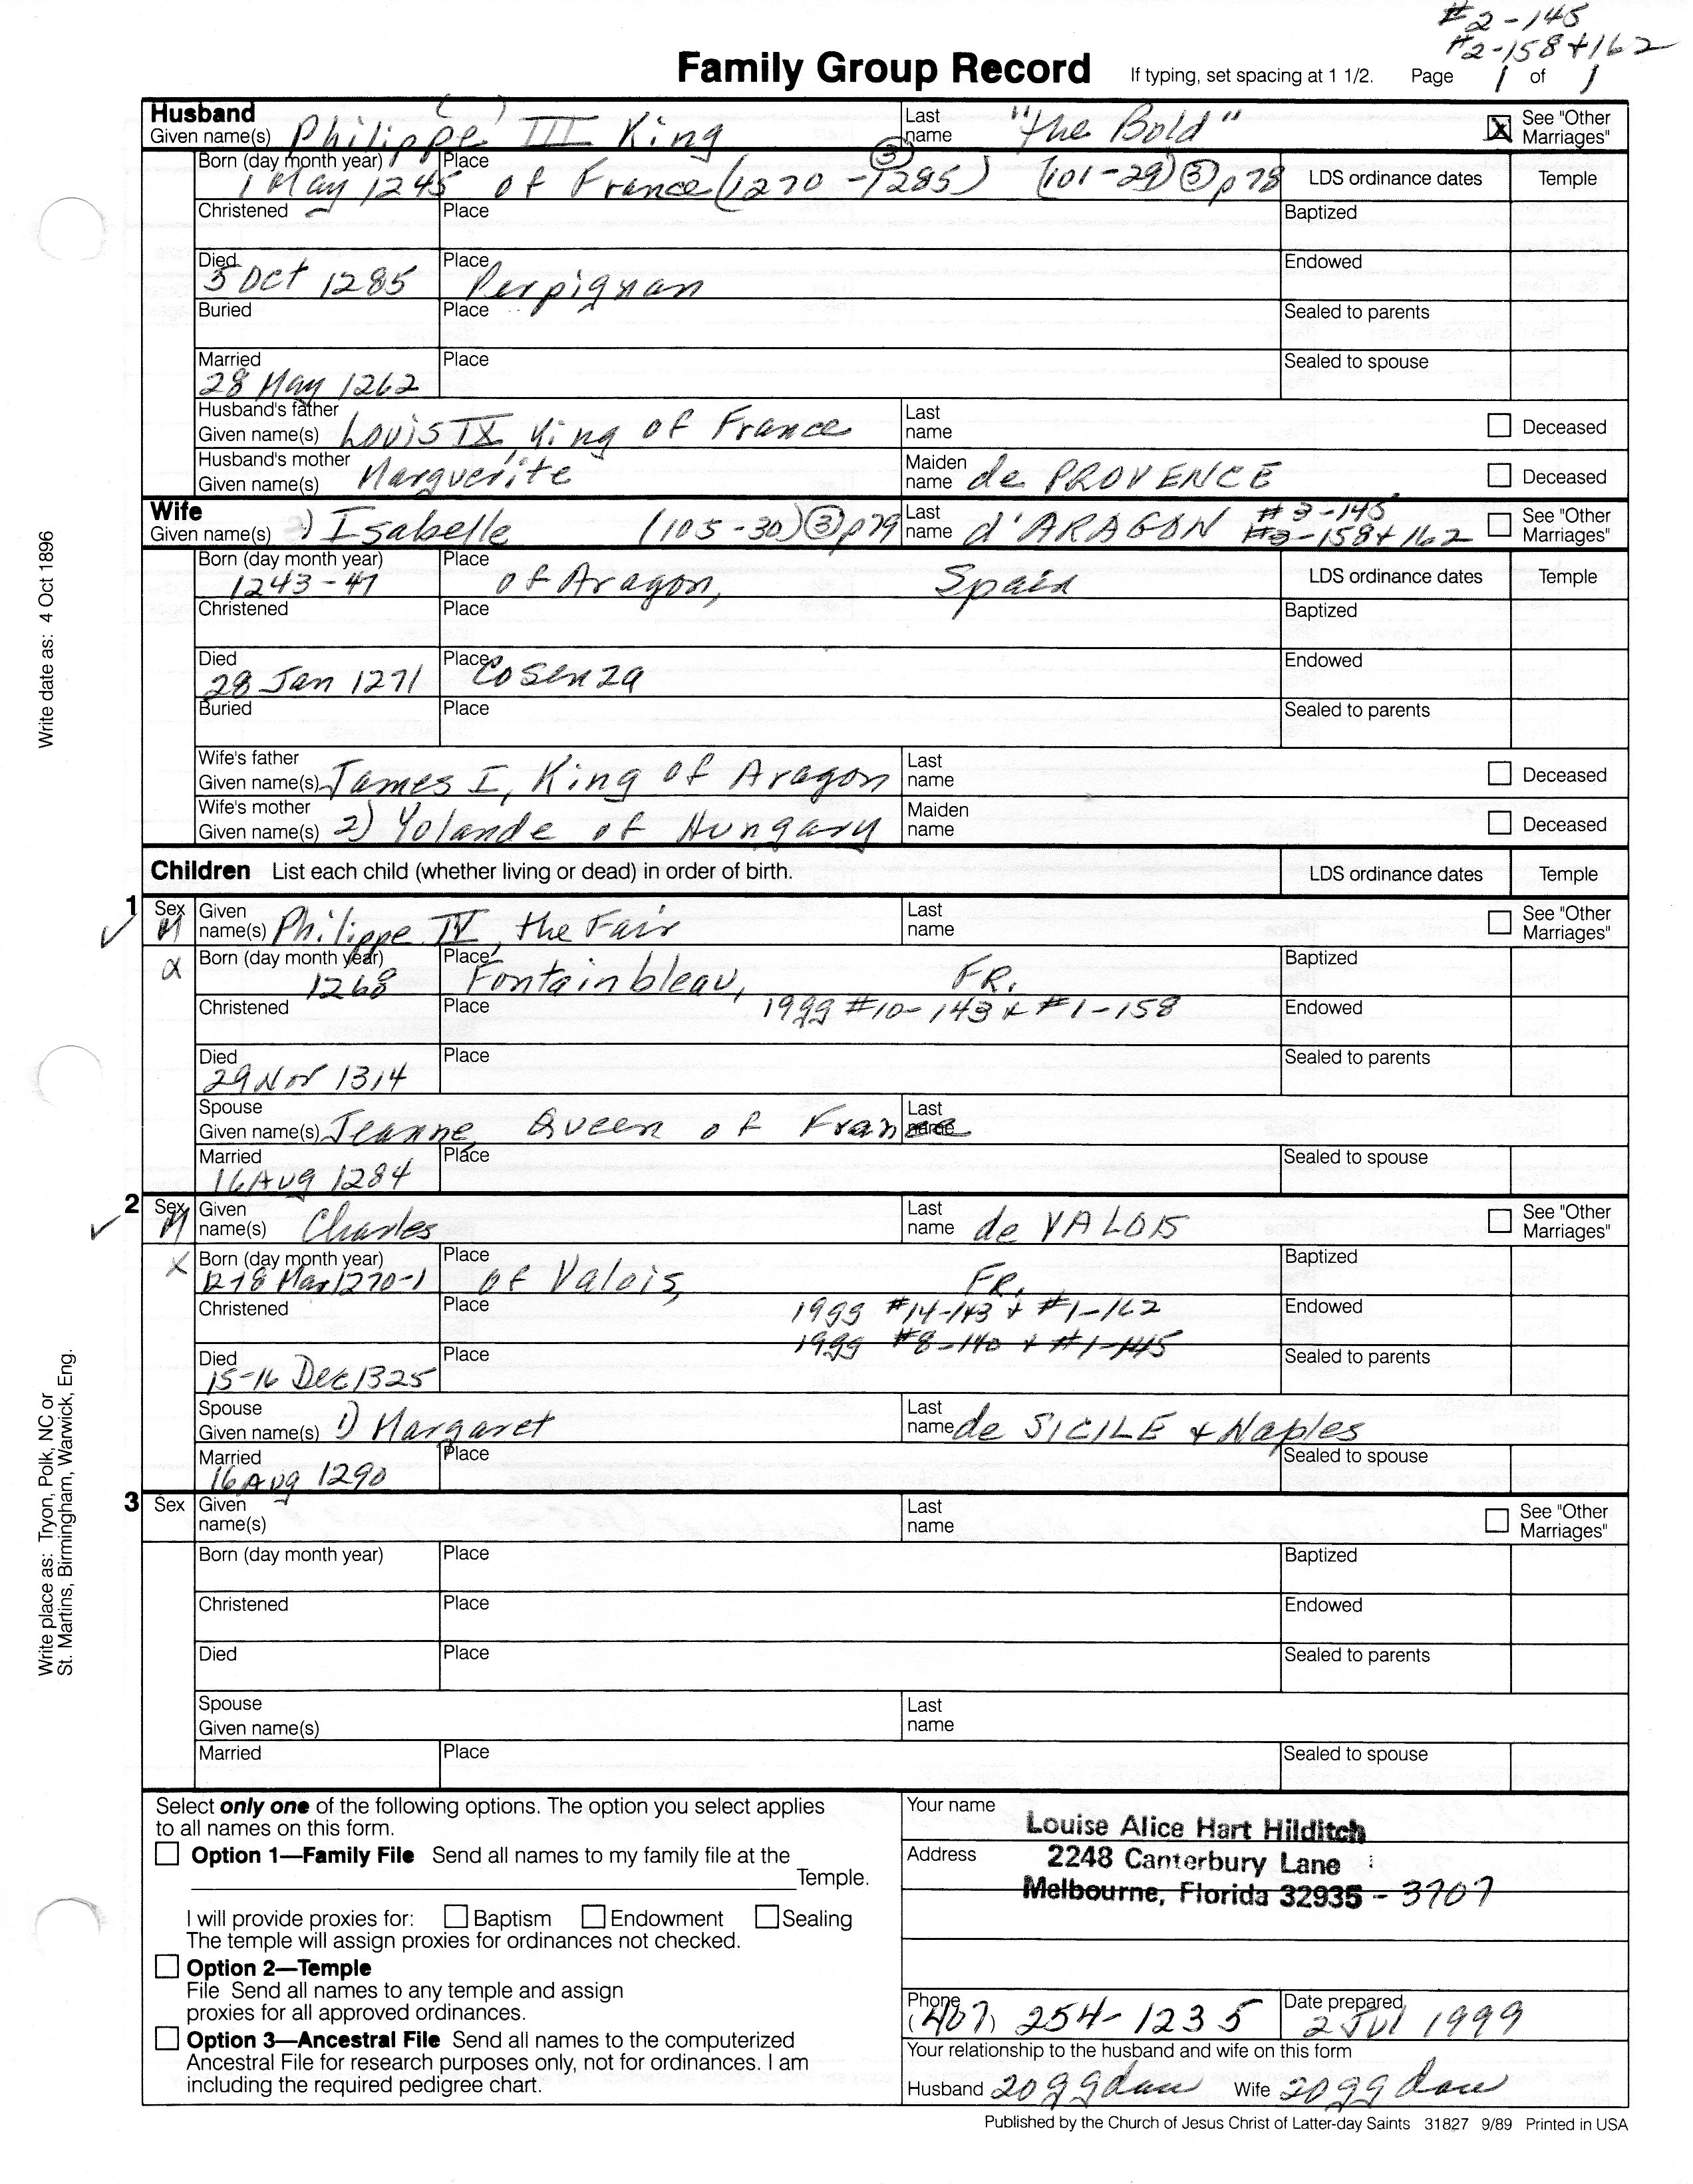 #2-145
#2-158+162
Family Group Record If typing, set spacing at 1 1/2. Page 1 of 1
Husband
Given name(s) Philippe III King Last name "the Bold" X See "Other Marriages"
Born (day month year) 1 May 1245 Place of France (1270 - 1285) ③ (101-29) ③ p 78 LDS ordinance dates Temple
Christened Place Baptized
Died 5 Oct 1285 Place Perpignan Endowed
Buried Place Sealed to parents
Married 28 May 1262 Place Sealed to spouse
Husband's father Given name(s) Louis IX, King of France Last name Deceased
Husband's mother Given name(s) Marguerite Maiden name de PROVENCE Deceased
Wife
Given name(s) 1) Isabelle (105-30) ③ p79 Last name d'ARAGON #3-145 #3-158+162 See "Other Marriages"
Born (day month year) 1243-47 Place of Aragon, Spain LDS ordinance dates Temple
Christened Place Baptized
Died 28 Jan 1271 Place Cosenza Endowed
Buried Place Sealed to parents
Wife's father Given name(s) James I, King of Aragon Last name Deceased
Wife's mother Given name(s) 2) Yolande of Hungary Maiden name Deceased
Children List each child (whether living or dead) in order of birth. LDS ordinance dates Temple
1 Sex M Given name(s) Philippe IV, the Fair Last name See "Other Marriages"
Born (day month year) 1268 Place Fontainbleau, FR. Baptized
Christened Place 19gg #10-143 + #1-158 Endowed
Died 29 Nov 1314 Place Sealed to parents
Spouse Given name(s) Jeanne, Queen of France Last name
Married 16 Aug 1284 Place Sealed to spouse
2 Sex M Given name(s) Charles Last name de VALOIS See "Other Marriages"
X Born (day month year) 12-18 Mar 1270-1 Place of Valois, FR. Baptized
Christened Place 19gg #14-143 + #1-162 Endowed
19gg #8-140 + #1-145
Died 15-16 Dec 1325 Place Sealed to parents
Spouse Given name(s) 1) Margaret Last name de SICILE + Naples
Married 16 Aug 1290 Place Sealed to spouse
3 Sex Given name(s) Last name See "Other Marriages"
Born (day month year) Place Baptized
Christened Place Endowed
Died Place Sealed to parents
Spouse Given name(s) Last name
Married Place Sealed to spouse
Select only one of the following options. The option you select applies
to all names on this form.
Option 1—Family File Send all names to my family file at the
Temple.
I will provide proxies for: Baptism Endowment Sealing
The temple will assign proxies for ordinances not checked.
Option 2—Temple
File Send all names to any temple and assign
proxies for all approved ordinances.
Option 3—Ancestral File Send all names to the computerized
Ancestral File for research purposes only, not for ordinances. I am
including the required pedigree chart.
Your name Louise Alice Hart Hilditch
Address 2248 Canterbury Lane
Melbourne, Florida 32935 - 3707
Phone (407) 254-1235 Date prepared 2 Jul 1999
Your relationship to the husband and wife on this form
Husband 20ggdau Wife 20ggdau
Published by the Church of Jesus Christ of Latter-day Saints 31827 9/89 Printed in USA
Write date as: 4 Oct 1896
Write place as: Tryon, Polk, NC or
St. Martins, Birmingham, Warwick, Eng.